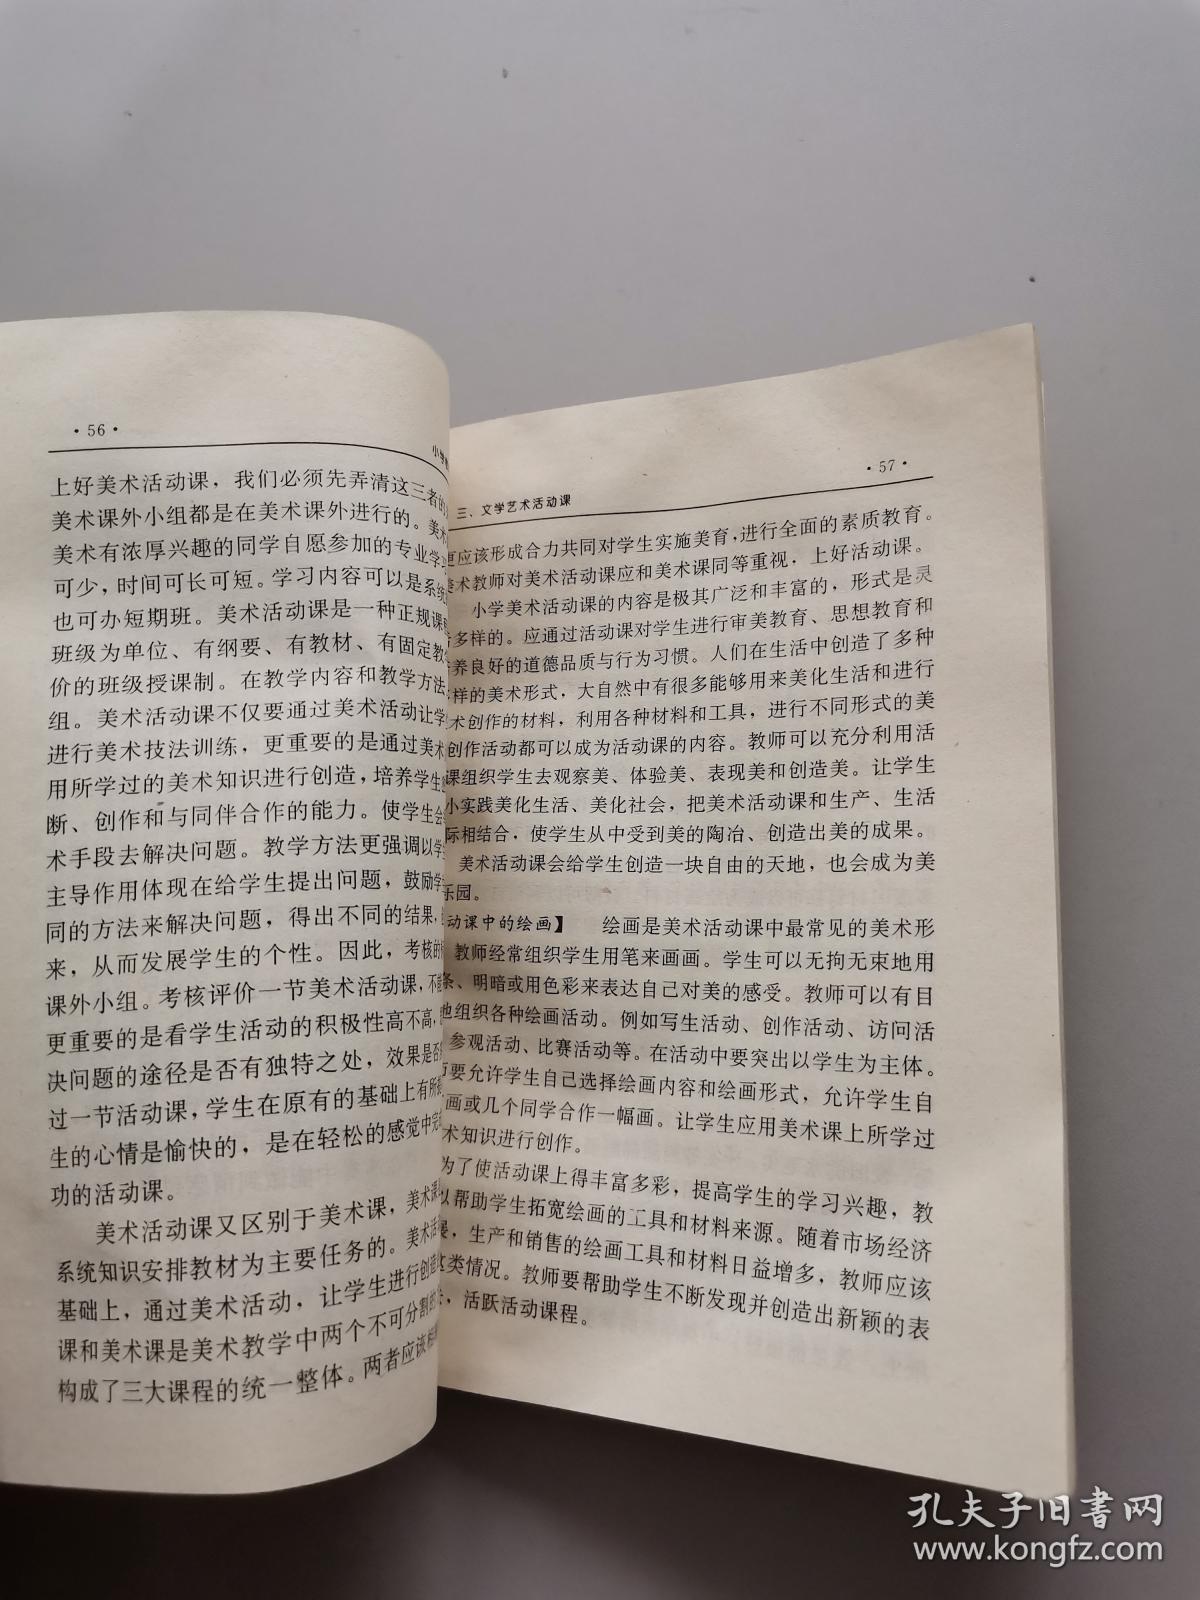 ·56·
小学
上好美术活动课，我们必须先弄清这三者的
美术课外小组都是在美术课外进行的。美术
美术有浓厚兴趣的同学自愿参加的专业学习
可少，时间可长可短。学习内容可以是系统
也可办短期班。美术活动课是一种正规课
班级为单位、有纲要、有教材、有固定教
价的班级授课制。在教学内容和教学方法
组。美术活动课不仅要通过美术活动让学
进行美术技法训练，更重要的是通过美术
用所学过的美术知识进行创造，培养学生
断、创作和与同伴合作的能力。使学生会
术手段去解决问题。教学方法更强调以学
主导作用体现在给学生提出问题，鼓励学
同的方法来解决问题，得出不同的结果，
来，从而发展学生的个性。因此，考核的
课外小组。考核评价一节美术活动课，不能
更重要的是看学生活动的积极性高不高，
决问题的途径是否有独特之处，效果是否
过一节活动课，学生在原有的基础上有所
生的心情是愉快的，是在轻松的感觉中完
功的活动课。
美术活动课又区别于美术课，美术课
系统知识安排教材为主要任务的。美术活
基础上，通过美术活动，让学生进行创造
课和美术课是美术教学中两个不可分割的
构成了三大课程的统一整体。两者应该
三、文学艺术活动课
·57·
更应该形成合力共同对学生实施美育，进行全面的素质教育。
术教师对美术活动课应和美术课同等重视，上好活动课。
小学美术活动课的内容是极其广泛和丰富的，形式是灵
多样的。应通过活动课对学生进行审美教育、思想教育和
养良好的道德品质与行为习惯。人们在生活中创造了多种
样的美术形式，大自然中有很多能够用来美化生活和进行
术创作的材料，利用各种材料和工具，进行不同形式的美
创作活动都可以成为活动课的内容。教师可以充分利用活
课组织学生去观察美、体验美、表现美和创造美。让学生
小实践美化生活、美化社会，把美术活动课和生产、生活
际相结合，使学生从中受到美的陶冶、创造出美的成果。
美术活动课会给学生创造一块自由的天地，也会成为美
乐园。
动课中的绘画】 绘画是美术活动课中最常见的美术形
教师经常组织学生用笔来画画。学生可以无拘无束地用
条、明暗或用色彩来表达自己对美的感受。教师可以有目
地组织各种绘画活动。例如写生活动、创作活动、访问活
参观活动、比赛活动等。在活动中要突出以学生为主体。
要允许学生自己选择绘画内容和绘画形式，允许学生自
画或几个同学合作一幅画。让学生应用美术课上所学过
术知识进行创作。
为了使活动课上得丰富多彩，提高学生的学习兴趣，教
以帮助学生拓宽绘画的工具和材料来源。随着市场经济
展，生产和销售的绘画工具和材料日益增多，教师应该
这类情况。教师要帮助学生不断发现并创造出新颖的表
，活跃活动课程。
孔夫子旧书网
www.kongfz.com